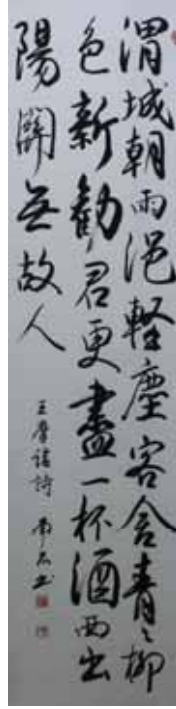 渭城朝雨浥軽塵客舎青々柳
色新勧君更盡一杯酒西出
陽關無故人
王摩詰詩